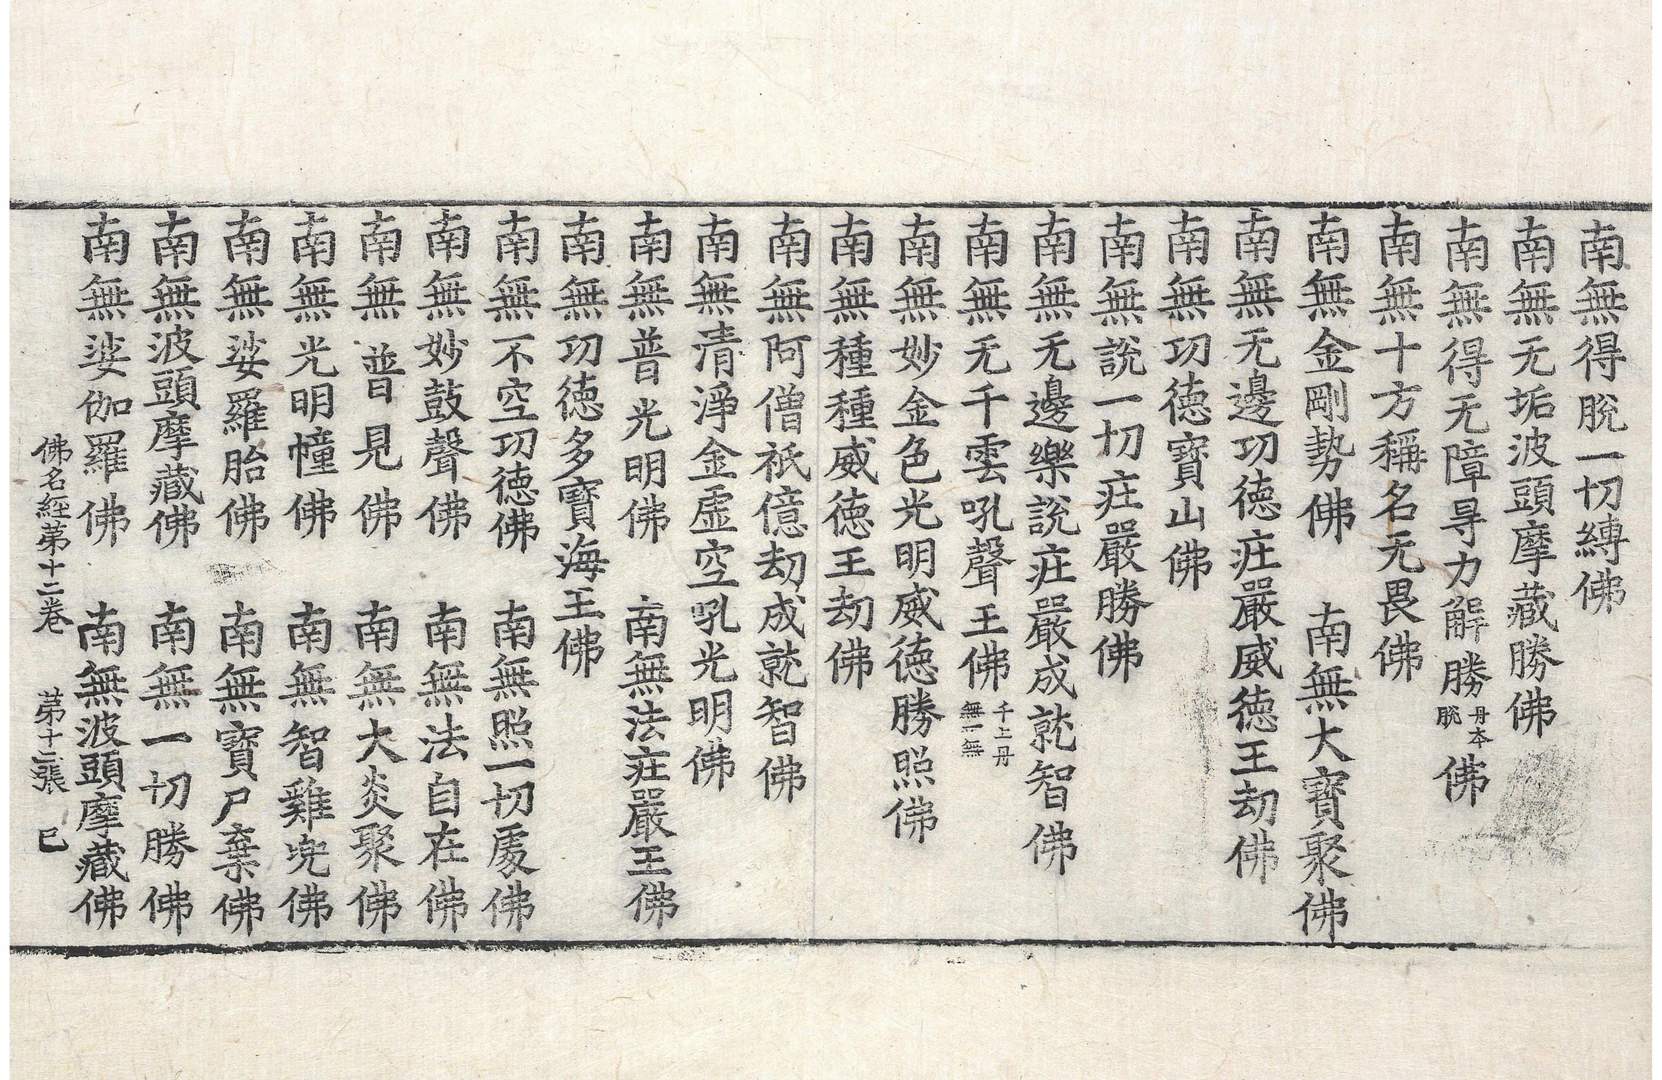 南無得脫一切縛佛
南無无垢波頭摩藏勝佛
南無得无障㝵力解勝丹本脫佛
南無十方稱名无畏佛
南無金剛勢佛　南無大寶聚佛
南無无邊功德庄嚴威德王劫佛
南無功德寶山佛
南無說一切庄嚴勝佛
南無无邊樂說庄嚴成就智佛
南無无千雲吼聲王佛千上丹無一無
南無妙金色光明威德勝照佛
南無種種威德王劫佛
南無阿僧祇億劫成就智佛
南無清淨金虛空吼光明佛
南無普光明佛　南無法庄嚴王佛
南無功德多寶海王佛
南無不空功德佛　南無照一切處佛
南無妙鼓聲佛　南無法自在佛
南無普見佛　南無大炎聚佛
南無光明幢佛　南無智雞兜佛
南無娑羅胎佛　南無寶尸棄佛
南無波頭摩藏佛　南無一切勝佛
南無娑伽羅佛　南無波頭摩藏佛
佛名經第十二卷　第十二張　巳